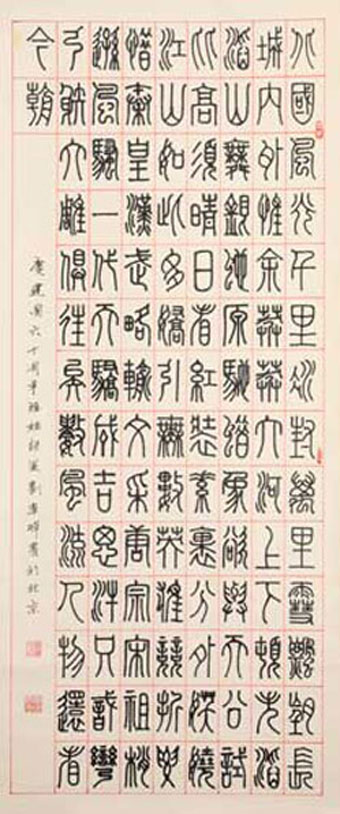 北國風光千里冰封萬里雪飄望長
城內外惟余莽莽大河上下頓失滔
滔山舞銀蛇原馳蠟象欲與天公試
比高須晴日看紅裝素裹分外妖嬈
江山如此多嬌引無數英雄競折腰
惜秦皇漢武略輸文采唐宗宋祖稍
遜風騷一代天驕成吉思汗只識彎
弓射大雕俱往矣數風流人物還看
今朝
慶建國六十周年書於北京